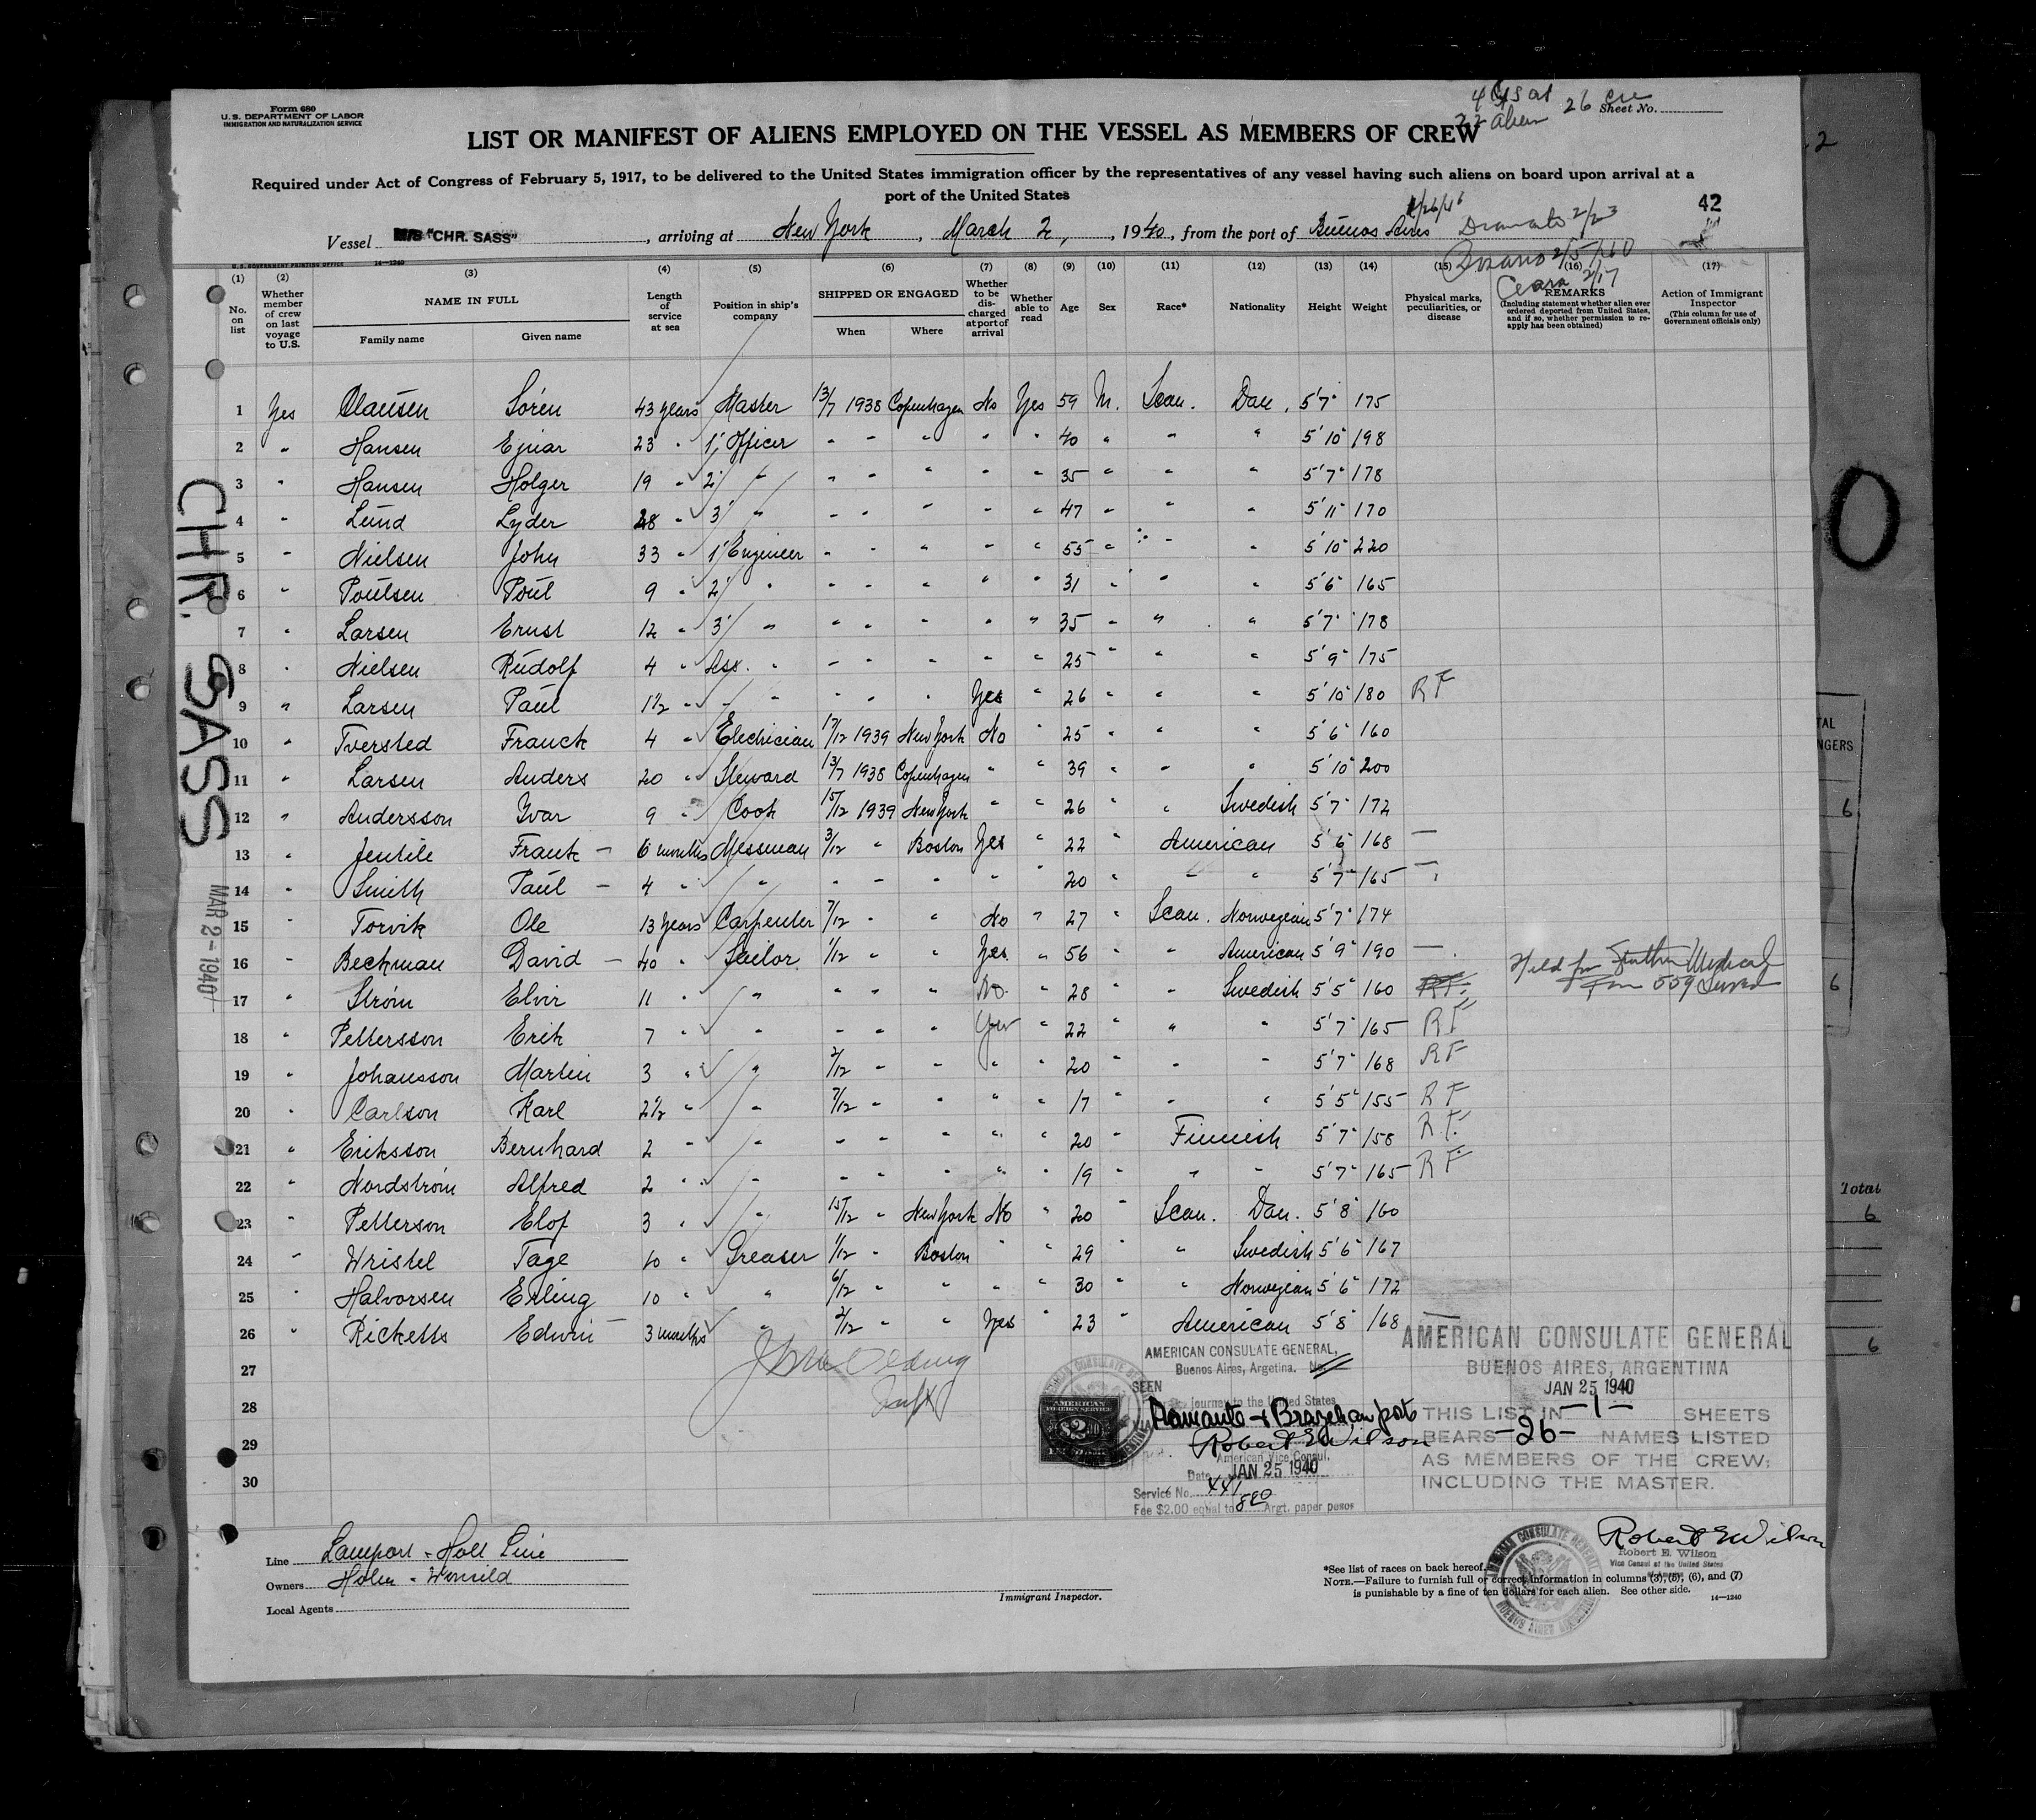 Form 680
U. S. DEPARTMENT OF LABOR
IMMIGRATION AND NATURALIZATION SERVICE
26 Sheet No.
22 alien
LIST OR MANIFEST OF ALIENS EMPLOYED ON THE VESSEL AS MEMBERS OF CREW
Required under Act of Congress of February 5, 1917, to be delivered to the United States immigration officer by the representatives of any vessel having such aliens on board upon arrival at a
port of the United States
42
Vessel M/S "CHR. SASS", arriving at New York, March 2, 1940, from the port of Buenos Aires
Rosario 2/5
Ceara 2/17
U. S. GOVERNMENT PRINTING OFFICE 14—1240
(1) (2) (3) (4) (5) (6) (7) (8) (9) (10) (11) (12) (13) (14) (15) (16) (17)
No. on list
Whether member of crew on last voyage to U.S.
NAME IN FULL
Family name Given name
Length of service at sea
Position in ship's company
SHIPPED OR ENGAGED
When Where
Whether to be discharged at port of arrival
Whether able to read
Age
Sex
Race*
Nationality
Height
Weight
Physical marks, peculiarities, or disease
REMARKS
(Including statement whether alien ever ordered deported from United States, and if so, whether permission to reapply has been obtained)
Action of Immigrant Inspector
(This column for use of Government officials only)
1 Yes Clausen Sören 43 years Master 13/7 1938 Copenhagen No Yes 59 M. Scan. Dan. 5'7" 175
2 " Hansen Ejnar 23 " 1' Officer " " " " " 40 " " " 5'10" 198
3 " Hansen Holger 19 " 2' " " " " " " 35 " " " 5'7" 178
4 " Lund Lyder 28 " 3' " " " " " " 47 " " " 5'11" 170
5 " Nielsen John 33 " 1' Engineer " " " " " 55 " " " 5'10" 220
6 " Poulsen Poul 9 " 2' " " " " " " 31 " " " 5'6" 165
7 " Larsen Ernst 12 " 3' " " " " " " 35 " " " 5'7" 178
8 " Nielsen Rudolf 4 " Ass. " " " " " " 25 " " " 5'9" 175
9 " Larsen Paul 1 1/2 " " " " " " Yes " 26 " " " 5'10" 180 RF
10 " Tversted Franck 4 " Electrician 17/12 1939 New York No " 25 " " " 5'6" 160
11 " Larsen Anders 20 " Steward 13/7 1938 Copenhagen " " 39 " " " 5'10" 200
12 " Andersson Yvar 9 " Cook 15/12 1939 New York " " 26 " " Swedish 5'7" 172
13 " Jentile Frank – 6 months Messman 3/12 " Boston Yes " 22 " American 5'6" 168 —
14 " Smith Paul – 4 " " " " " " " 20 " " " 5'7" 165 —
15 " Torvik Ole 13 years Carpenter 7/12 " " No " 27 " Scan. Norwegian 5'7" 174
16 " Beckman David – 40 " Sailor 1/12 " " Yes " 56 " " American 5'9" 190 —
17 " Ström Elvir 11 " " " " " No " 28 " " Swedish 5'5" 160 RF Held for further Medical Form 559 Served
18 " Pettersson Erik 7 " " " " " Yes " 22 " " " 5'7" 165 RF
19 " Johansson Martin 3 " " 2/12 " " " " 20 " " " 5'7" 168 RF
20 " Carlson Karl 2 1/2 " " 7/12 " " " " 17 " " " 5'5" 155 RF
21 " Eriksson Bernhard 2 " " " " " " " 20 " Finnish 5'7" 158 RF
22 " Nordström Alfred 2 " " " " " " " 19 " " " 5'7" 165 RF
23 " Petterson Elof 3 " " 15/12 " New York No " 20 " Scan. Dan. 5'8" 160
24 " Wristel Tage 10 " Greaser 1/12 " Boston " " 29 " " Swedish 5'6" 167
25 " Halvorsen Erling 10 " " 6/12 " " " " 30 " " Norwegian 5'6" 172
26 " Ricketts Edwin – 3 months " 2/12 " " Yes " 23 " American 5'8" 168 —
27
28
29
30
CHR. SASS
MAR 2 - 1940
AMERICAN CONSULATE GENERAL,
Buenos Aires, Argetina. No.
SEEN
journey to the United States
Robert E Wilson
American Vice Consul.
Date JAN 25 1940
Service No.
Fee $2.00 equal to 8.40 Argt. paper pesos
AMERICAN
FOREIGN SERVICE
$2.00
AMERICAN CONSULATE GENERAL
BUENOS AIRES, ARGENTINA
JAN 25 1940
THIS LIST IN -1- SHEETS
BEARS -26- NAMES LISTED
AS MEMBERS OF THE CREW;
INCLUDING THE MASTER.
Line Lamport & Holt Line
Owners Holm & Wonsild
Local Agents
Immigrant Inspector.
Robert E Wilson
Robert E. Wilson
Vice Consul of the United States
of America
*See list of races on back hereof.
NOTE.—Failure to furnish full or correct information in columns (3), (5), (6), and (7)
is punishable by a fine of ten dollars for each alien. See other side.
14—1240
2
O
6
6
Total
6
6